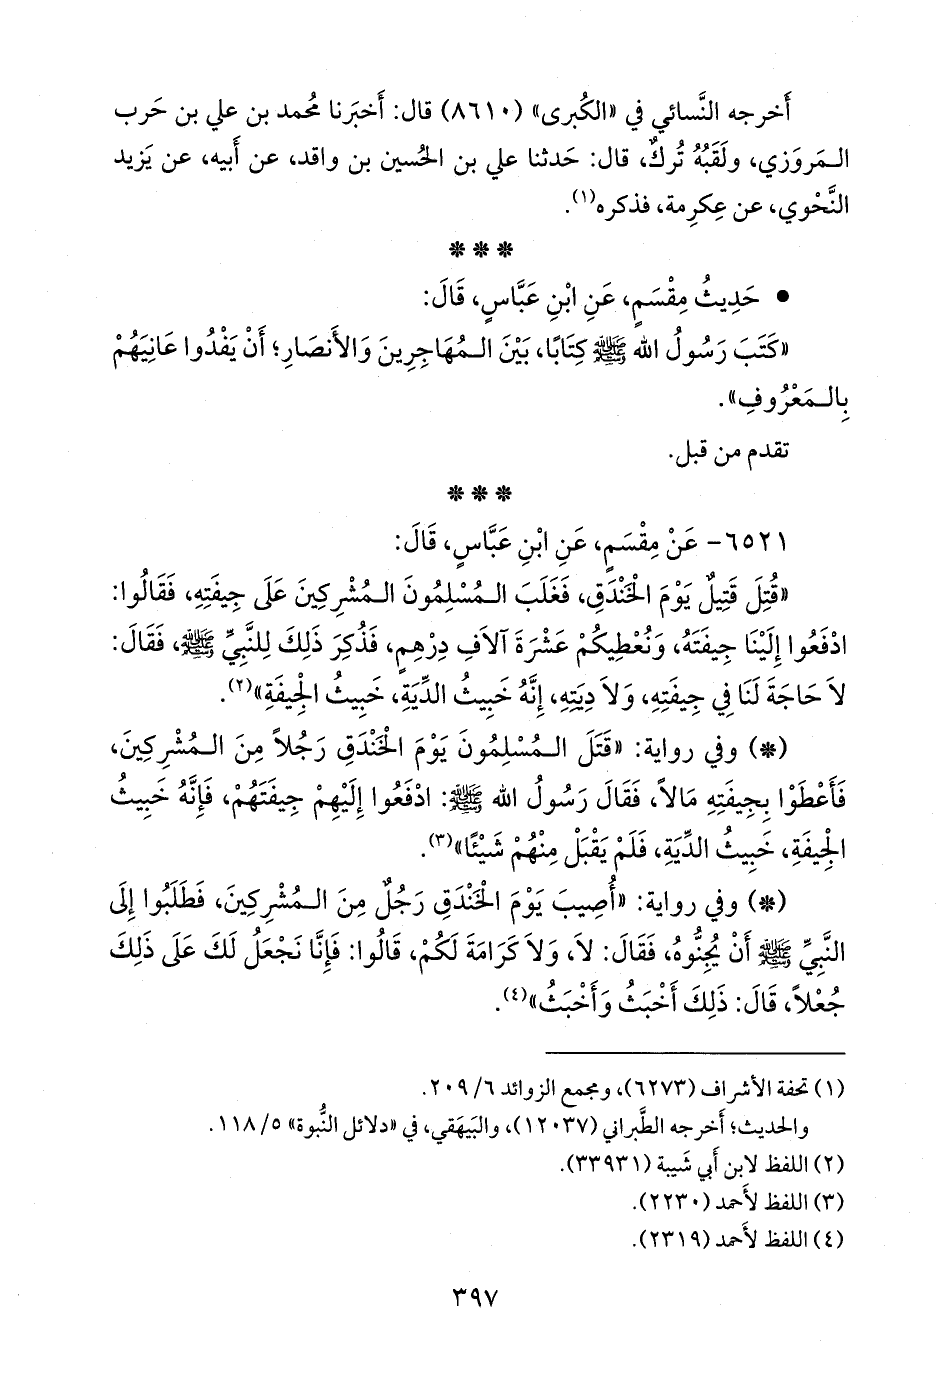 أَخرجه النَّسائي في «الكُبرى» (٨٦١٠) قال: أَخبَرنا مُحمد بن علي بن حَرب
الـمَروَزي، ولَقَبُهُ تُركٌ، قال: حَدثنا علي بن الحُسين بن واقد، عن أَبيه، عن يَزيد
النَّحْوي، عن عِكرِمة، فذكره(١).
***
• حَدِيثُ مِقْسَمٍ، عَنِ ابْنِ عَبَّاسٍ، قَالَ:
«كَتَبَ رَسُولُ الله ﷺ كِتَابًا، بَيْنَ الـمُهَاجِرِينَ وَالأَنصَارِ؛ أَنْ يَفْدُوا عَانِيَهُمْ
بِالـمَعْرُوفِ».
تقدم من قبل.
***
٦٥٢١- عَنْ مِقْسَمٍ، عَنِ ابْنِ عَبَّاسٍ، قَالَ:
«قُتِلَ قَتِيلٌ يَوْمَ الخَنْدَقِ، فَغَلَبَ الـمُسْلِمُونَ الـمُشْرِكِينَ عَلَى جِيفَتِهِ، فَقَالُوا:
ادْفَعُوا إِلَيْنَا جِيفَتَهُ، وَنُعْطِيكُمْ عَشْرَةَ آلاَفِ دِرْهِمٍ، فَذُكِرَ ذَلِكَ لِلنَّبِيِّ ﷺ، فَقَالَ:
لاَ حَاجَةَ لَنَا فِي جِيفَتِهِ، وَلاَ دِيَتِهِ، إِنَّهُ خَبِيثُ الدِّيَةِ، خَبِيثُ الجِيفَةِ»(٢).
(*) وفي رواية: «قَتَلَ الـمُسْلِمُونَ يَوْمَ الخَنْدَقِ رَجُلاً مِنَ الـمُشْرِكِينَ،
فَأَعْطَوْا بِجِيفَتِهِ مَالاً، فَقَالَ رَسُولُ الله ﷺ: ادْفَعُوا إِلَيْهِمْ جِيفَتَهُمْ، فَإِنَّهُ خَبِيثُ
الجِيفَةِ، خَبِيثُ الدِّيَةِ، فَلَمْ يَقْبَلْ مِنْهُمْ شَيْئًا»(٣).
(*) وفي رواية: «أُصِيبَ يَوْمَ الخَنْدَقِ رَجُلٌ مِنَ الـمُشْرِكِينَ، فَطَلَبُوا إِلَى
النَّبِيِّ ﷺ أَنْ يُجِنُّوهُ، فَقَالَ: لاَ، وَلاَ كَرَامَةَ لَكُمْ، قَالُوا: فَإِنَّا نَجْعَلُ لَكَ عَلَى ذَلِكَ
جُعْلاً، قَالَ: ذَلِكَ أَخْبَثُ وَأَخْبَثُ»(٤).
(١) تحفة الأشراف (٦٢٧٣)، ومجمع الزوائد ٦/ ٢٠٩.
والحديث؛ أخرجه الطَّبراني (١٢٠٣٧)، والبَيهَقي، في «دلائل النُّبوة» ٥/ ١١٨.
(٢) اللفظ لابن أَبي شَيبة (٣٣٩٣١).
(٣) اللفظ لأَحمد (٢٢٣٠).
(٤) اللفظ لأَحمد (٢٣١٩).
٣٩٧